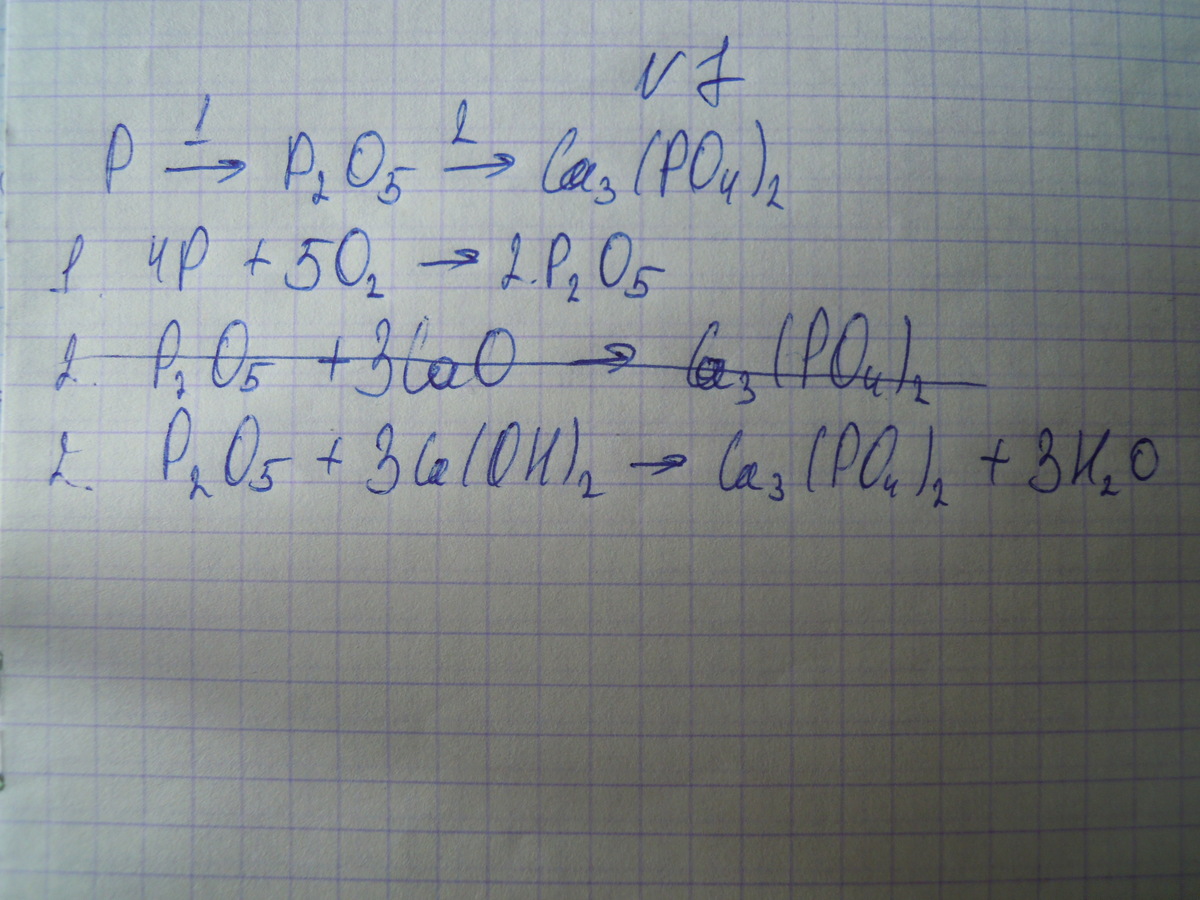 N 7
P 1→ P₂O₅ 2→ Ca₃(PO₄)₂
1. 4P + 5O₂ → 2P₂O₅
2. P₂O₅ + 3CaO → Ca₃(PO₄)₂
2. P₂O₅ + 3Ca(OH)₂ → Ca₃(PO₄)₂ + 3H₂O